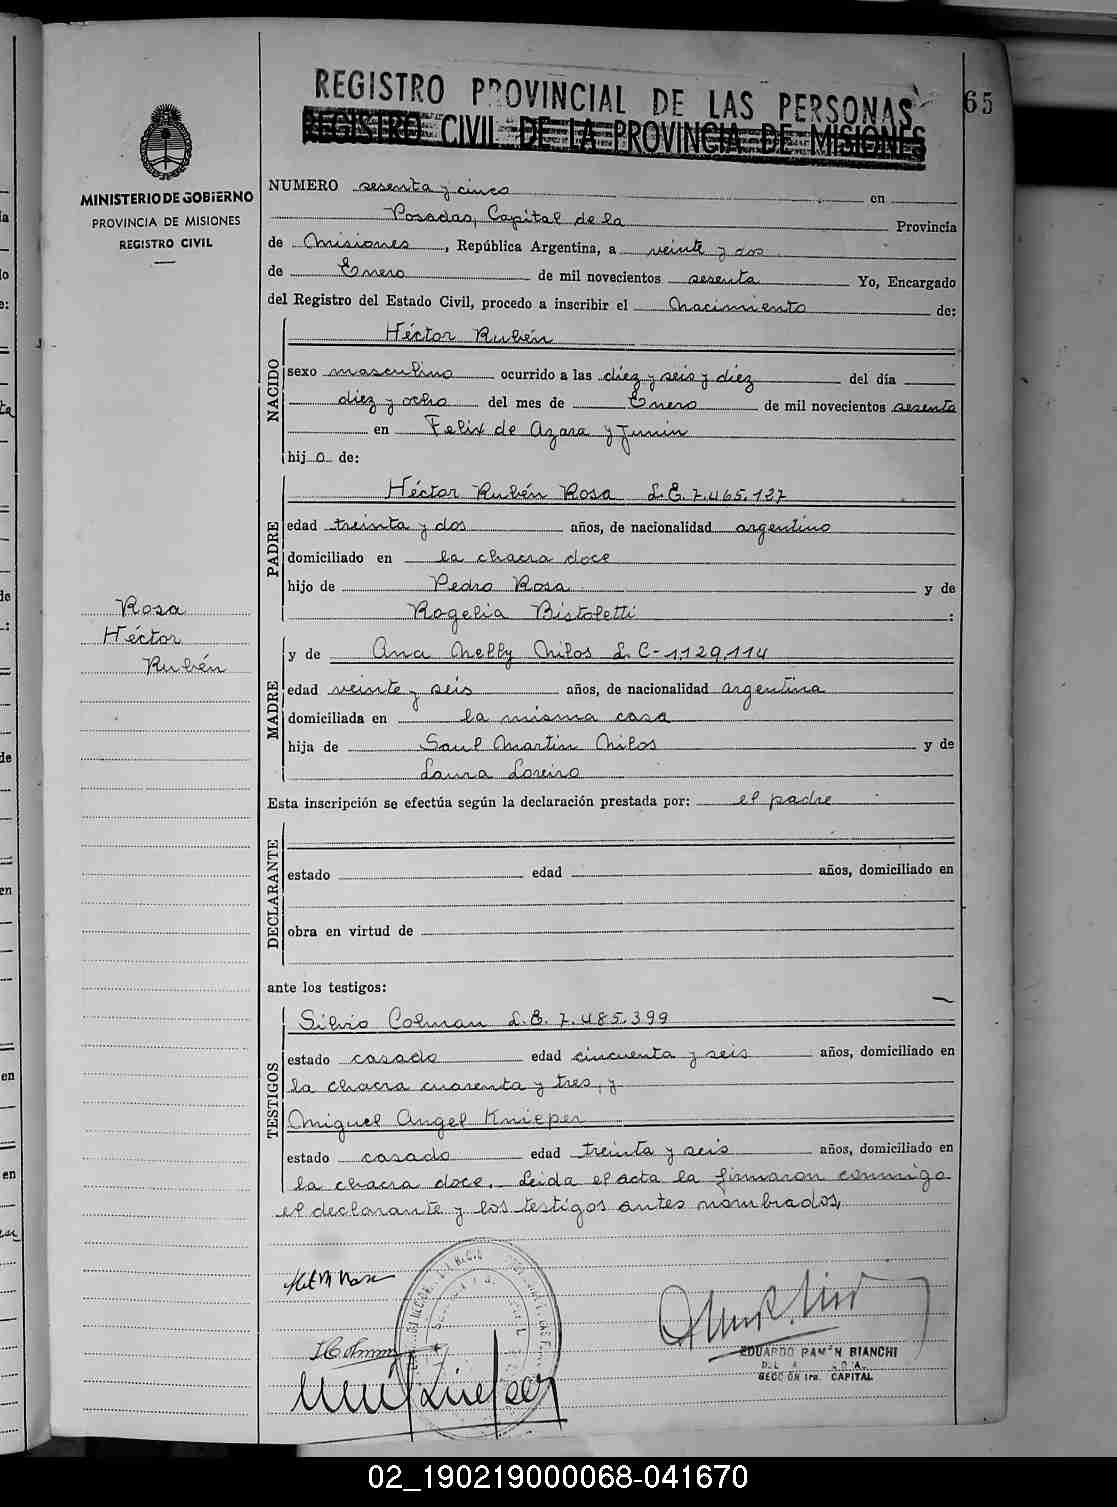 REGISTRO PROVINCIAL DE LAS PERSONAS
REGISTRO CIVIL DE LA PROVINCIA DE MISIONES
65
MINISTERIO DE GOBIERNO
PROVINCIA DE MISIONES
REGISTRO CIVIL
NUMERO sesenta y cinco en
Posadas, Capital de la Provincia
de Misiones, República Argentina, a veinte y dos
de Enero de mil novecientos sesenta Yo, Encargado
del Registro del Estado Civil, procedo a inscribir el nacimiento de:
NACIDO
Héctor Rubén
sexo masculino ocurrido a las diez y seis y diez del día
diez y ocho del mes de Enero de mil novecientos sesenta
en Felix de Azara y Junin
hijo de:
PADRE
Héctor Rubén Rosa L.E. 7.465.127
edad treinta y dos años, de nacionalidad argentino
domiciliado en la chacra doce
hijo de Pedro Rosa y de
Rogelia Bistoletti:
Rosa
Héctor
Rubén
MADRE
y de Ana Nelly Milos L.C-1,129,114
edad veinte y seis años, de nacionalidad argentina
domiciliada en la misma casa
hija de Saul Martin Milos y de
Laura Loreiro
Esta inscripción se efectúa según la declaración prestada por: el padre
DECLARANTE
estado edad años, domiciliado en
obra en virtud de
ante los testigos:
TESTIGOS
Silvio Colman L.E. 7.485.399
estado casado edad cincuenta y seis años, domiciliado en
la chacra cuarenta y tres, y
Miguel Angel Knieper
estado casado edad treinta y seis años, domiciliado en
la chacra doce. Leida el acta la firmaron conmigo
el declarante y los testigos antes nombrados,
EDUARDO RAMON BIANCHI
SECCION 1ra. CAPITAL
02_190219000068-041670